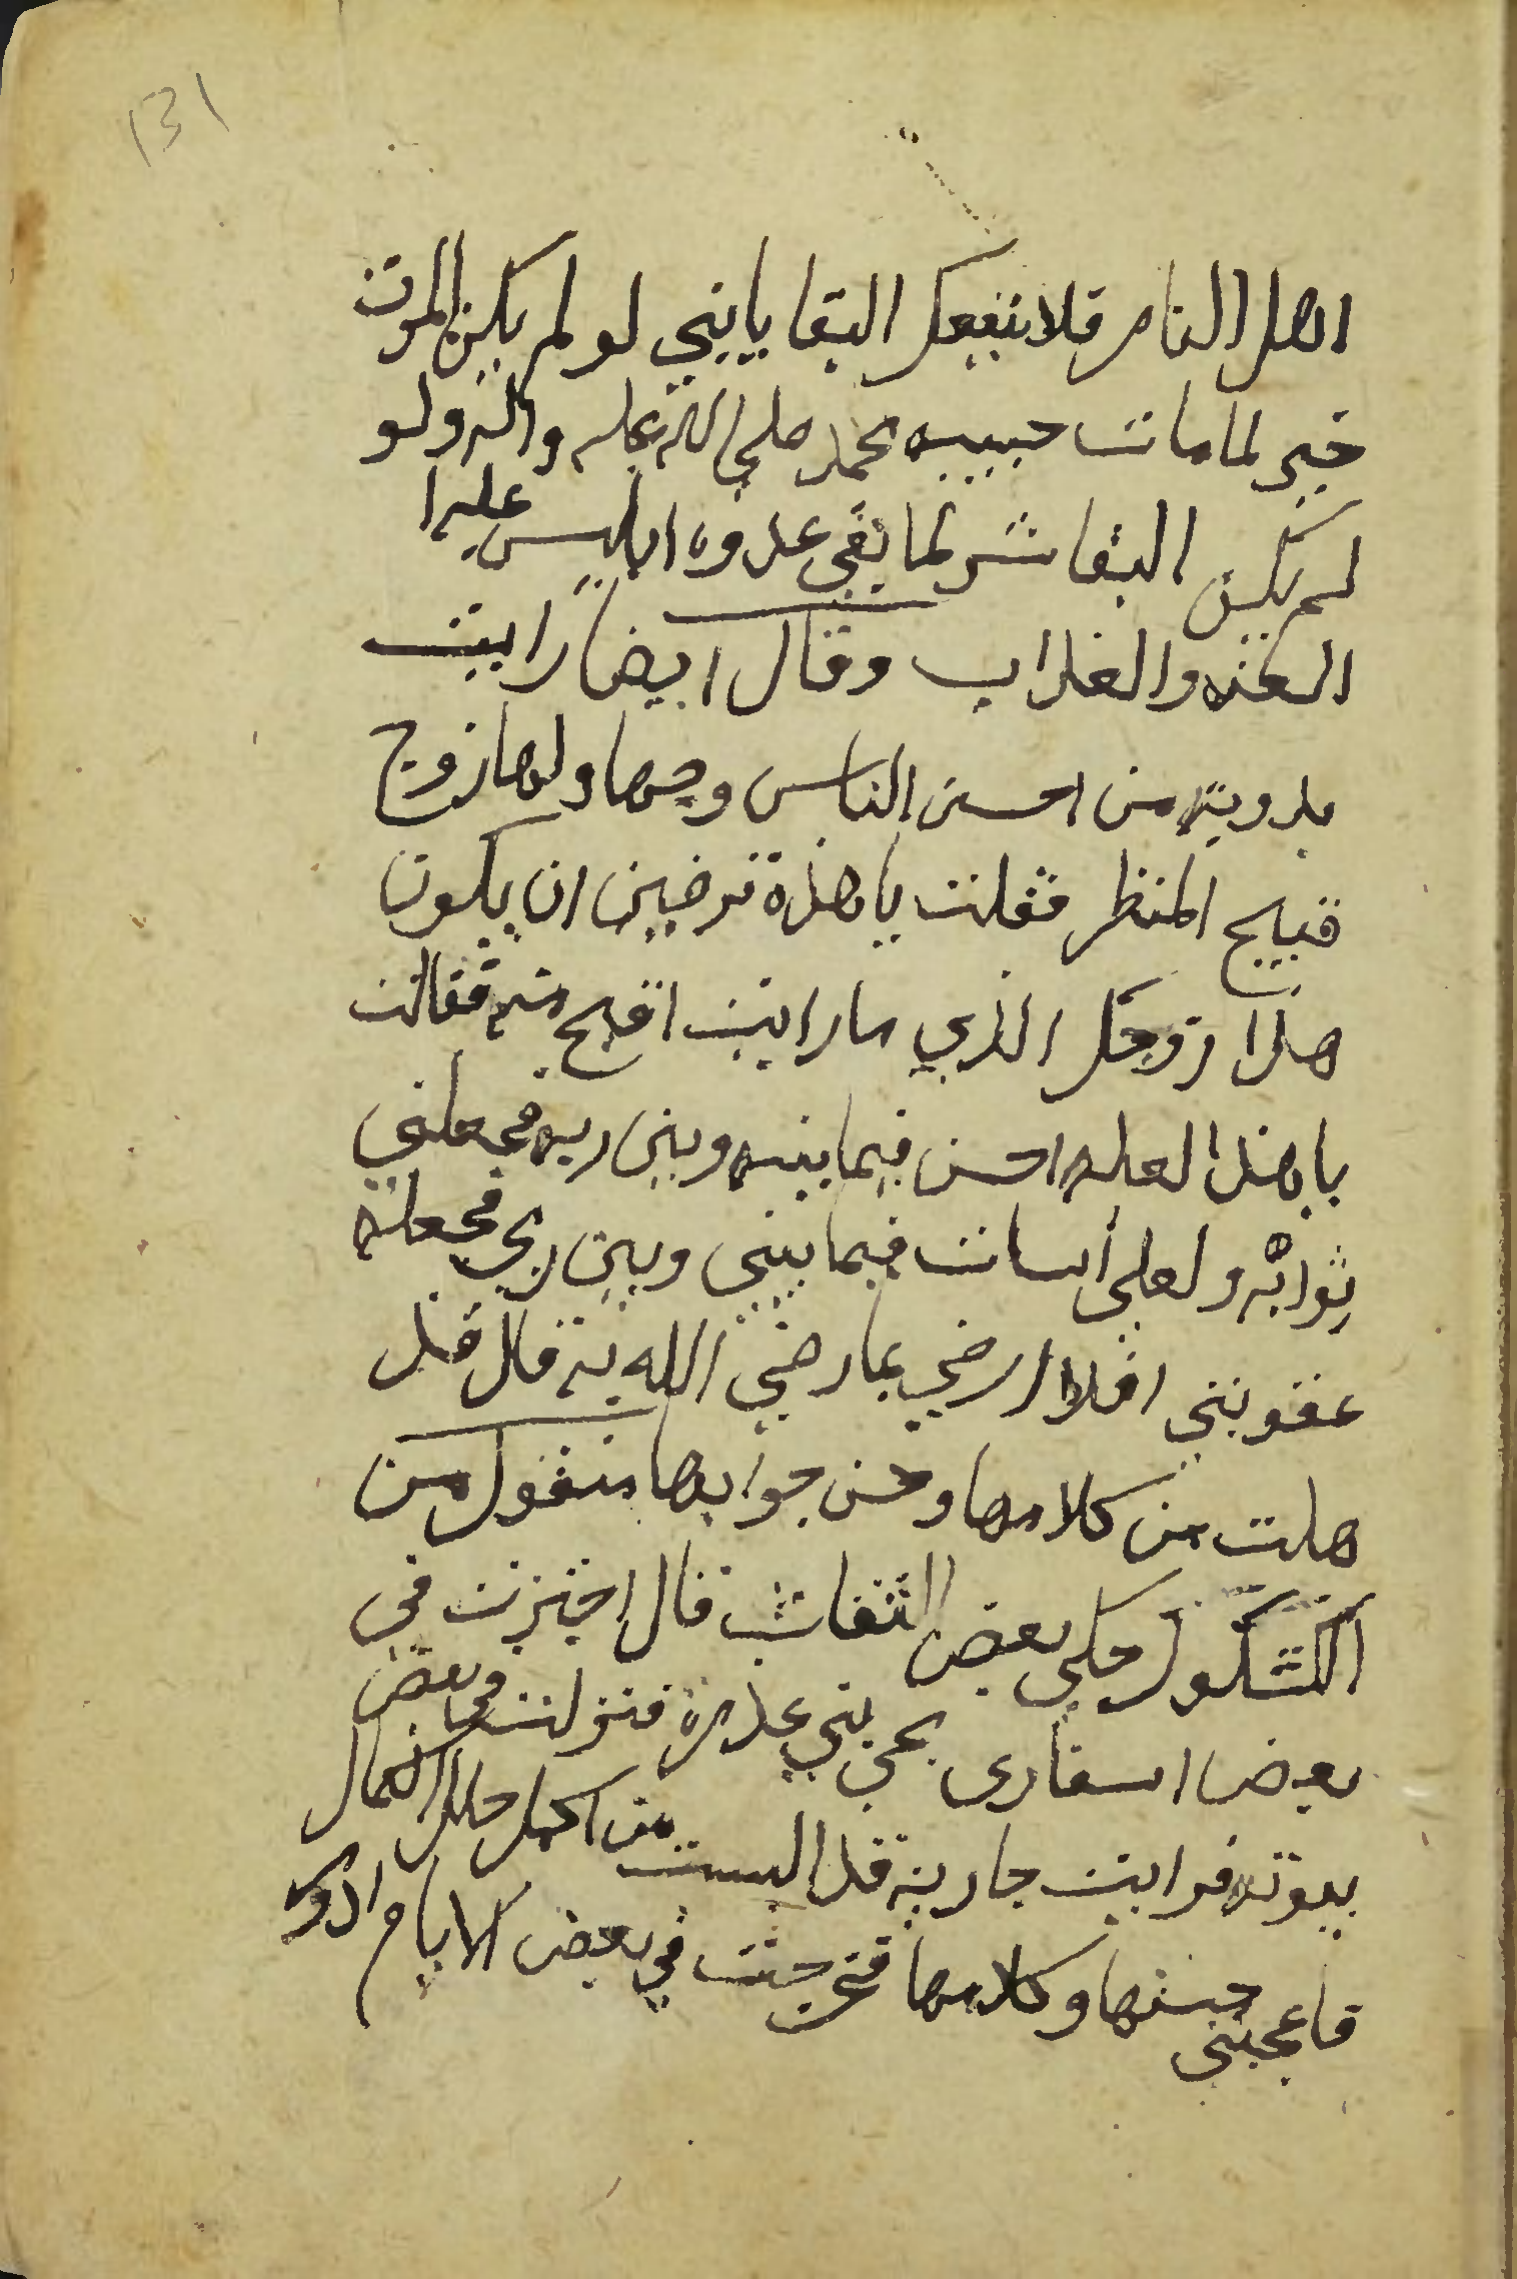 131
اهل النار فلا ينفعك البقا يابني لو لم يكن الموت
خير لما مات حبيبه محمد صلى الله عليه واله ولو
لم يكن البقا شر لما بقي عدوه ابليس عليه ا
العنه والعذاب وقال ايضا رايت
بدوية من احسن الناس وجها ولها زوج
قبيح المنظر فقلت يا هذه ترضين ان يكون
هذا زوجك الذي ما رايت اقبح منه فقالت
يا هذا لعله احسن فيما بينه وبين ربه فجعلني
ثوابه ولعلي أسات فيما بيني وبين ربي فجعله
عقوبتي افلا ارضي بما رضي الله به قال قد
هلت من كلامها وحسن جوابها منقول من
الكشكول حكي بعض الثقاث قال اجتزت في
بعض اسفاري بحي بني عذره فنزلت في بعض
بيوته فرايت جارية قد البست من اكمل حلل الجمال
فاعجبني حسنها وكلامها فخرجت في بعض الايام ادور